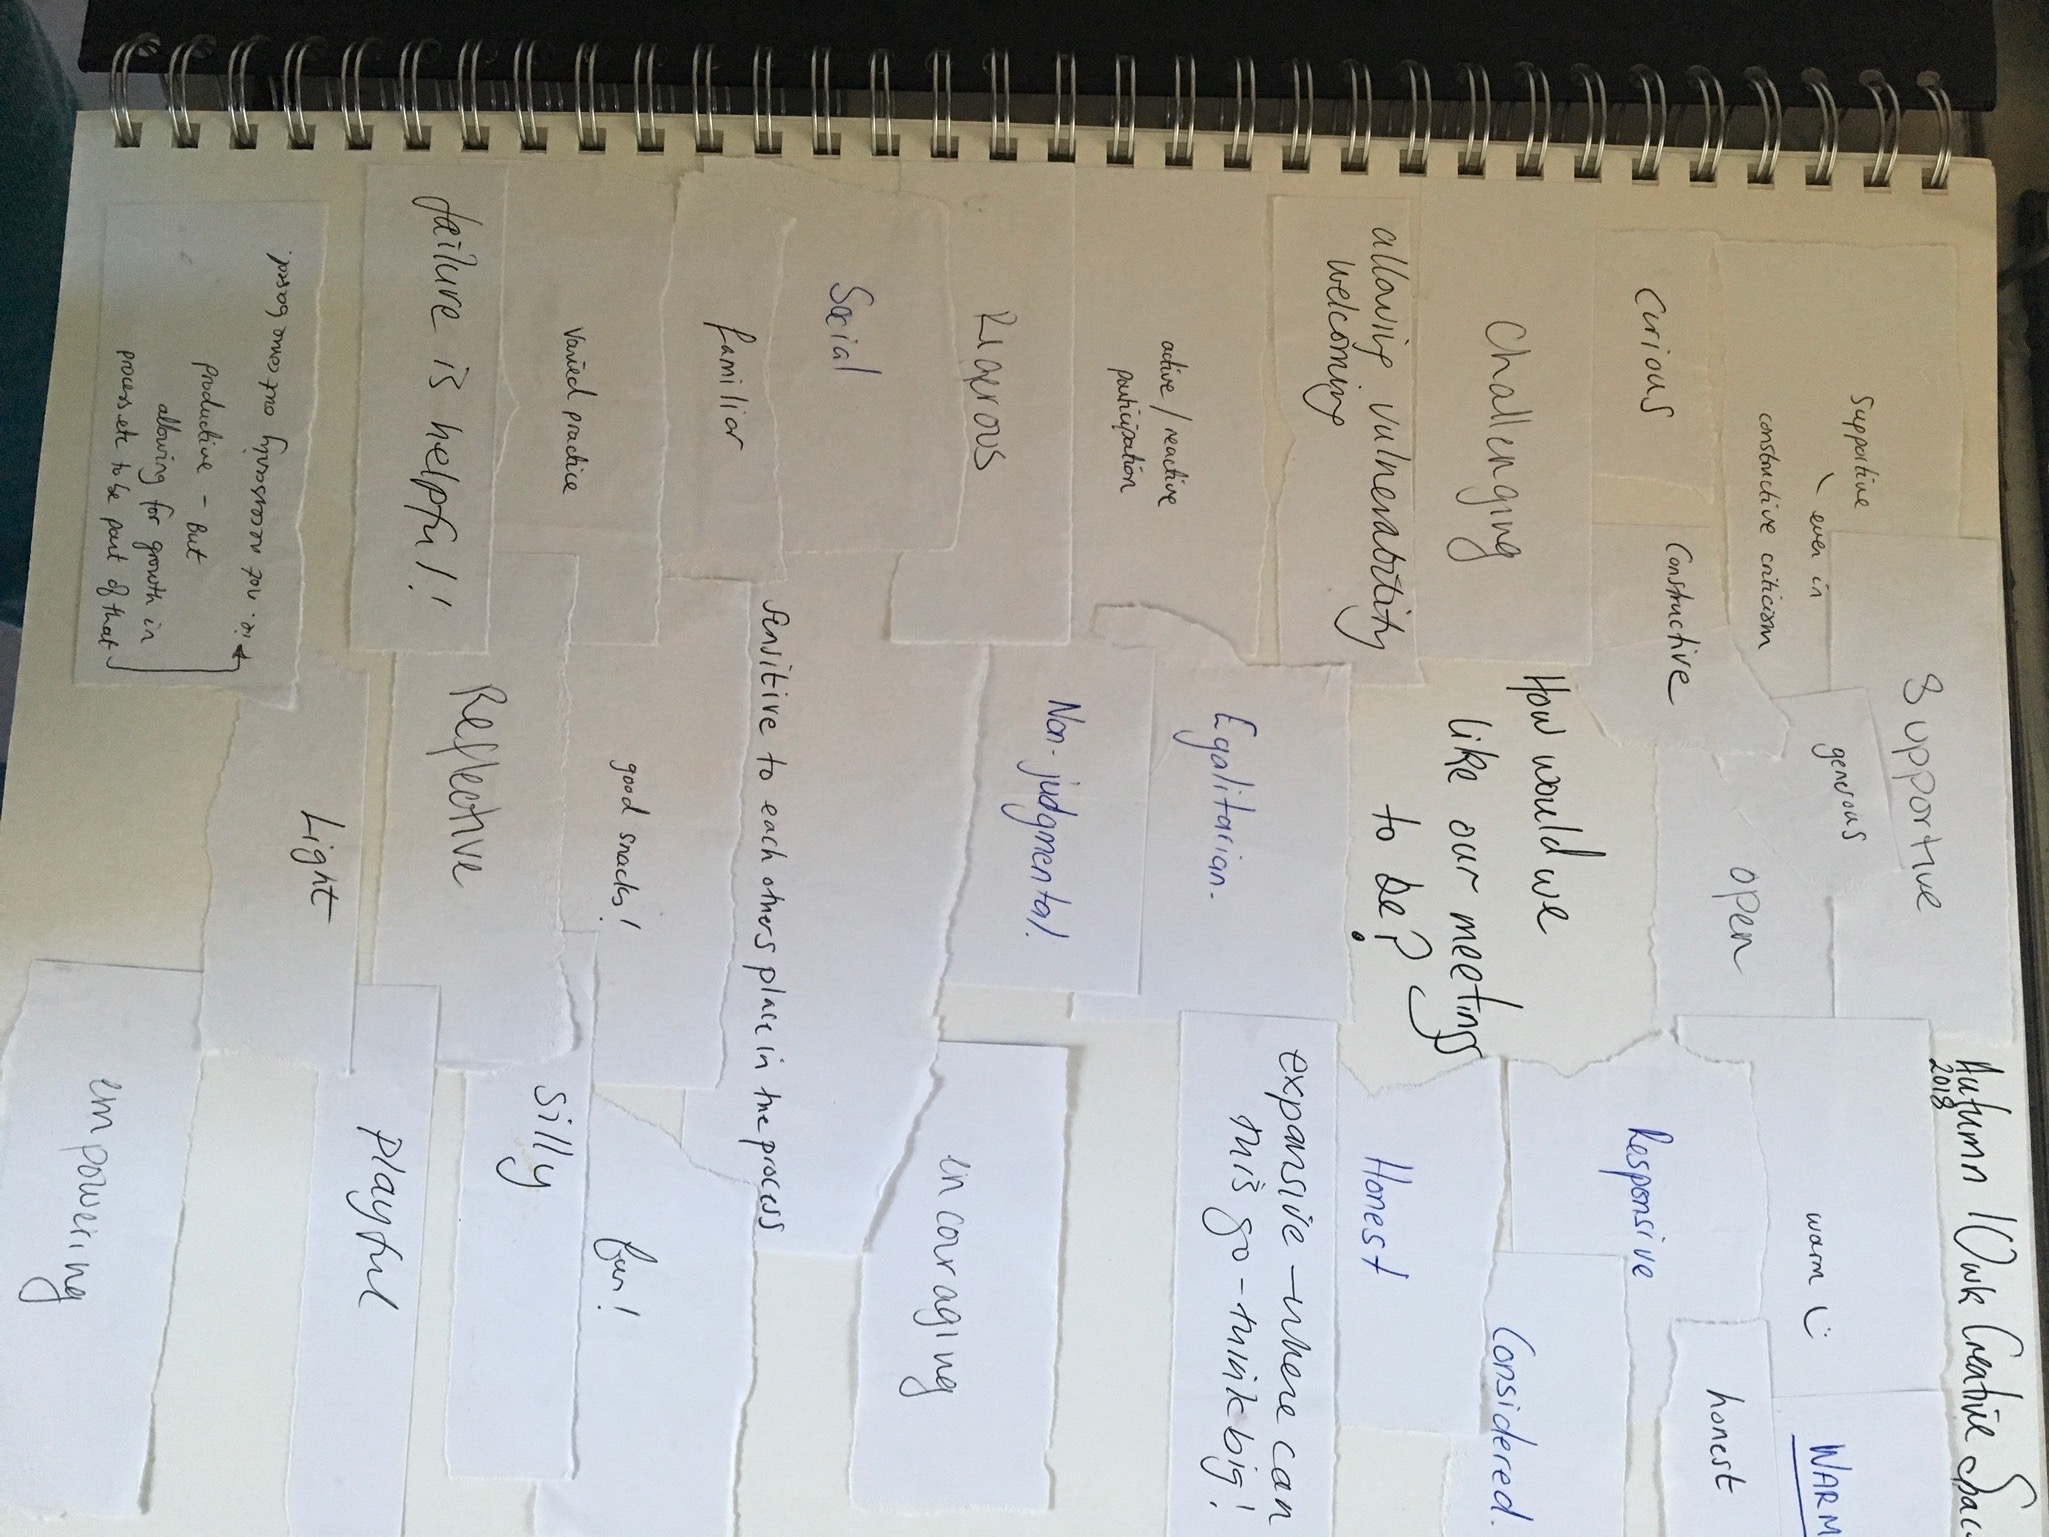 Autumn 10wk Creative Spac
2018
Supportive
even in
constructive criticism
Supportive
generous
warm
WARM
Curious
Constructive
open
Responsive
honest
Challenging
How would we
like our meetings
to be?
Considered.
allowing vulnerability
welcoming
Honest
active/reactive
participation
Egalitarian.
expansive - where can
this go - think big!
Rigerous
Non-judgmental.
incouraging
Social
familior
Sensitive to each others place in the process
Varied practice
good snacks!
fun!
failure is helpful!
Reflective
silly
Light
playful
ie. not necessarily outcome based.
productive - But
allowing for growth in
process etc to be part of that
empowering